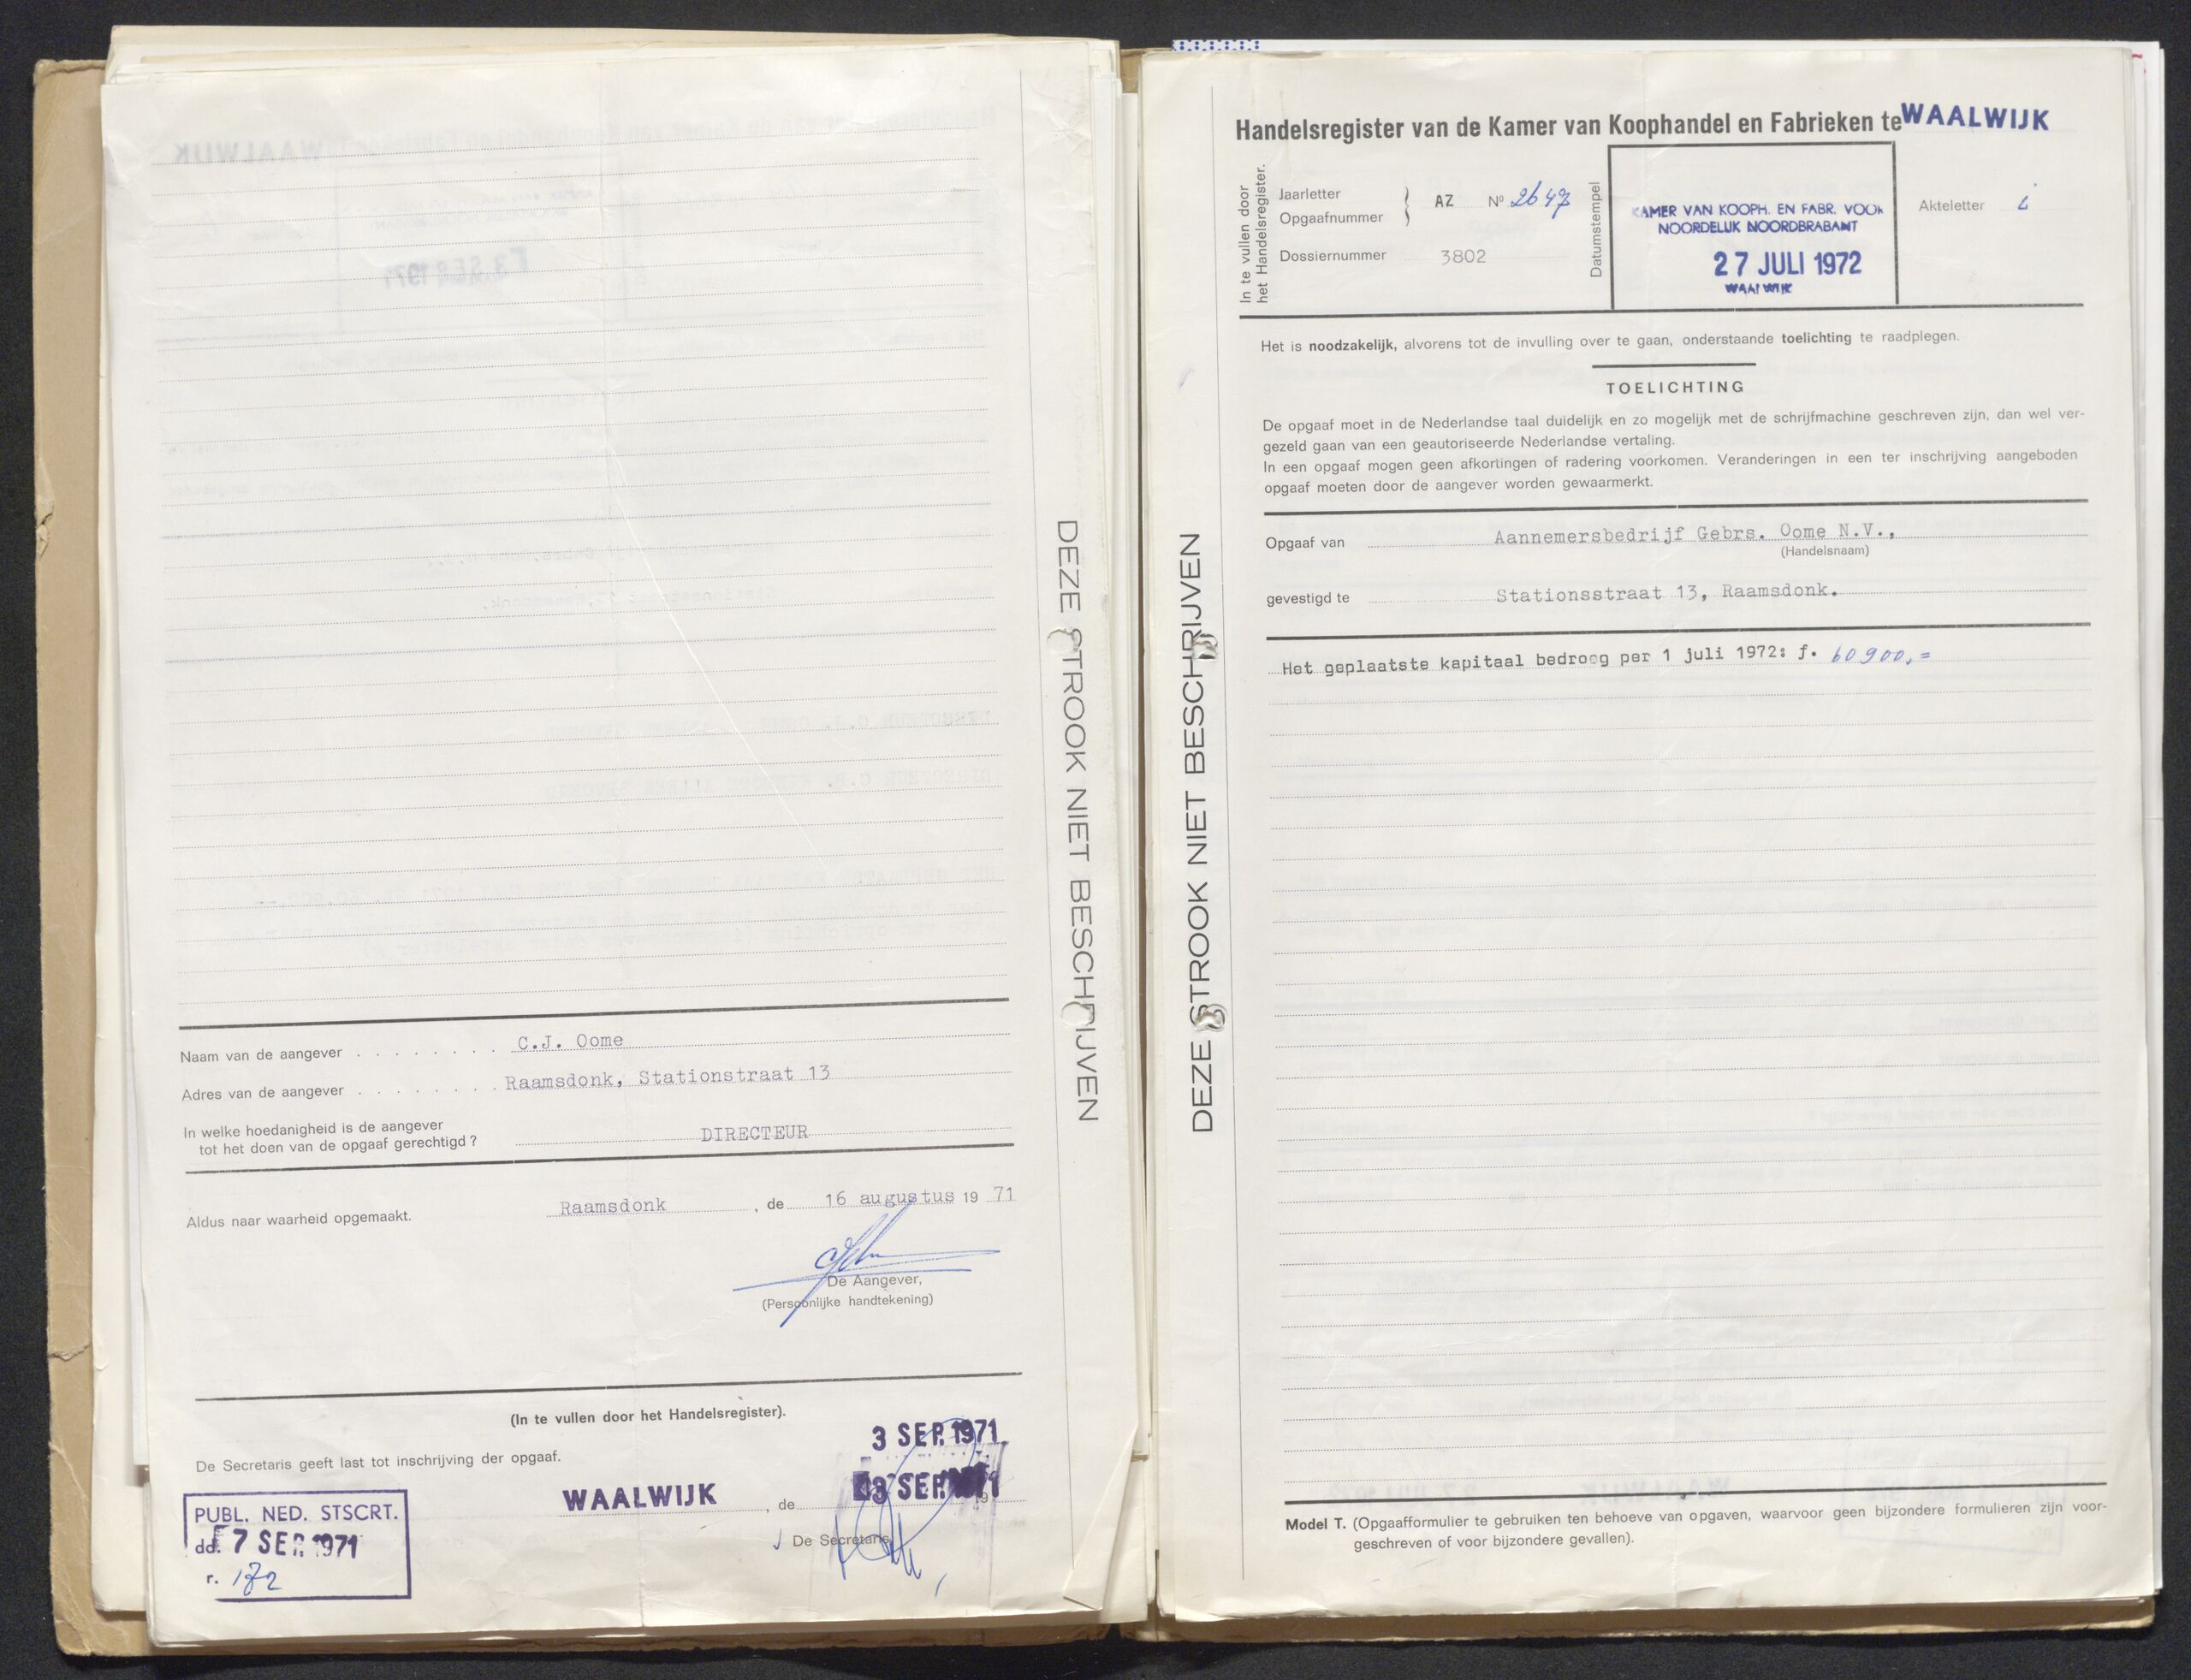 Naam van de aangever . . . . . . . . C.J. Oome
Adres van de aangever . . . . . . . Raamsdonk, Stationstraat 13
In welke hoedanigheid is de aangever
tot het doen van de opgaaf gerechtigd ? DIRECTEUR
Aldus naar waarheid opgemaakt. Raamsdonk , de 16 augustus 19 71
De Aangever,
(Persoonlijke handtekening)
(In te vullen door het Handelsregister).
3 SEP. 1971
De Secretaris geeft last tot inschrijving der opgaaf.
WAALWIJK , de 3 SEP. 1971
De Secretaris,
PUBL. NED. STSCRT.
dd. 7 SEP. 1971
r. 172
DEZE STROOK NIET BESCHRIJVEN
DEZE STROOK NIET BESCHRIJVEN
Handelsregister van de Kamer van Koophandel en Fabrieken te WAALWIJK
In te vullen door
het Handelsregister.
Jaarletter
Opgaafnummer
AZ No 2647
Dossiernummer 3802
Datumstempel
KAMER VAN KOOPH. EN FABR. VOOR
NOORDELIJK NOORDBRABANT
27 JULI 1972
WAALWIJK
Akteletter i
Het is noodzakelijk, alvorens tot de invulling over te gaan, onderstaande toelichting te raadplegen.
TOELICHTING
De opgaaf moet in de Nederlandse taal duidelijk en zo mogelijk met de schrijfmachine geschreven zijn, dan wel ver-
gezeld gaan van een geautoriseerde Nederlandse vertaling.
In een opgaaf mogen geen afkortingen of radering voorkomen. Veranderingen in een ter inschrijving aangeboden
opgaaf moeten door de aangever worden gewaarmerkt.
Opgaaf van Aannemersbedrijf Gebrs. Oome N.V.,
(Handelsnaam)
gevestigd te Stationsstraat 13, Raamsdonk.
Het geplaatste kapitaal bedroeg per 1 juli 1972: f. 60900,=
Model T. (Opgaafformulier te gebruiken ten behoeve van opgaven, waarvoor geen bijzondere formulieren zijn voor-
geschreven of voor bijzondere gevallen).